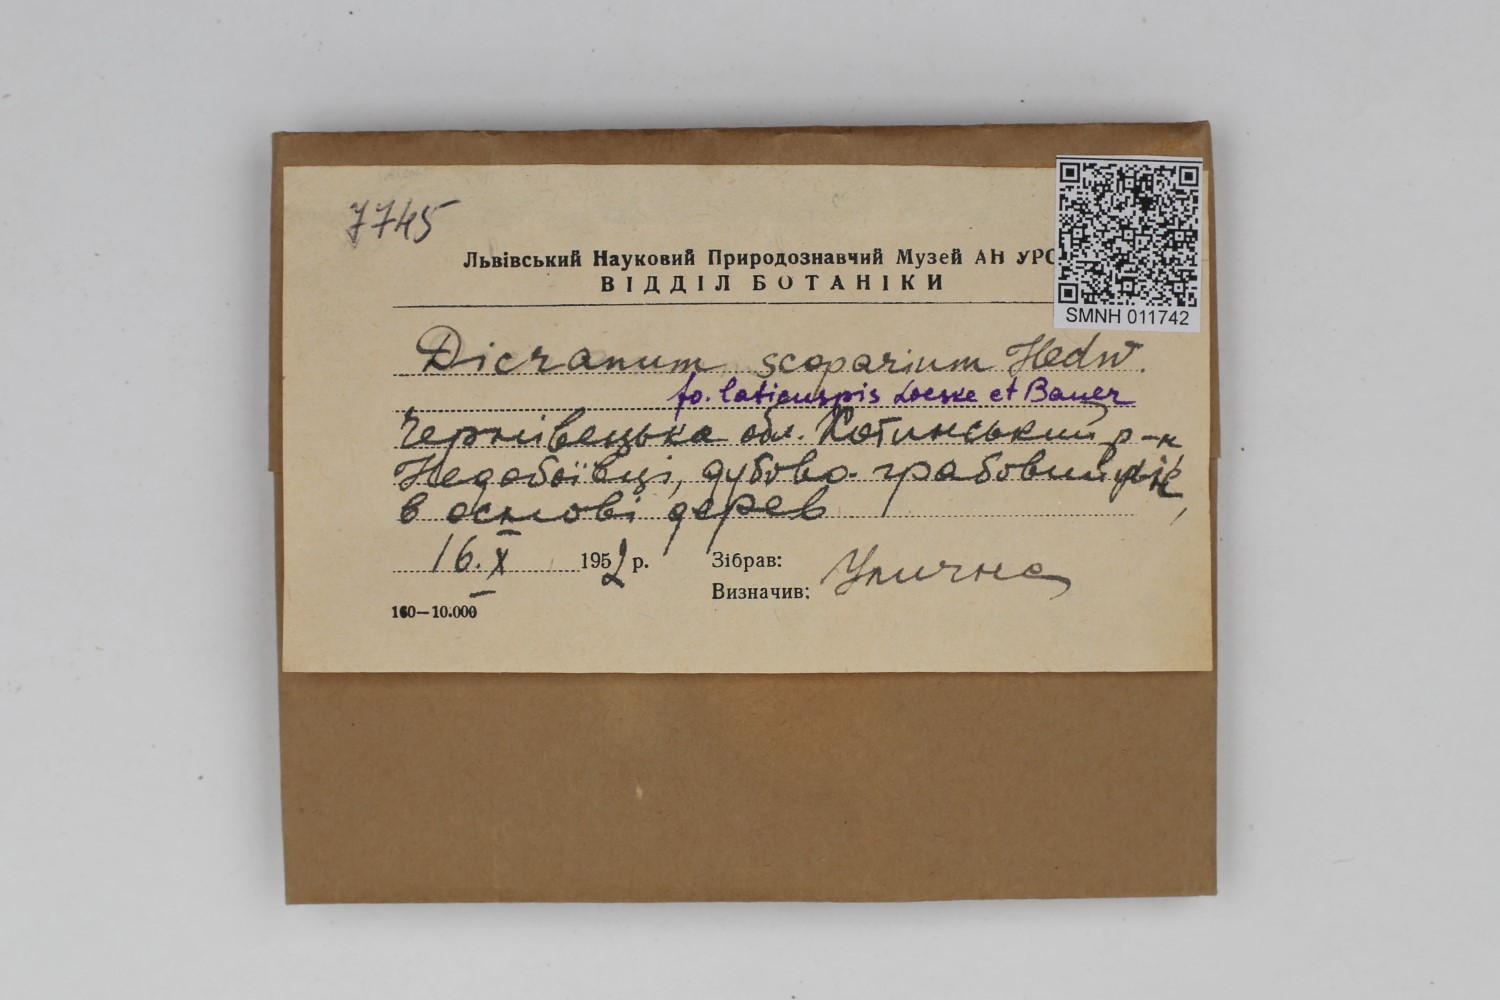 7745
Львівський Науковий Природознавчий Музей АН УРС
ВІДДІЛ БОТАНІКИ
SMNH 011742
Dicranum scoparium Hedw.
fo. laticuspis Loeske et Bauer
Чернівецька обл. Хотинський р-н
Недобоївці, дубово-грабовий ліс,
в основі дерев
16.X 1952 р. Зібрав:
Визначив: Улична
160—10.000